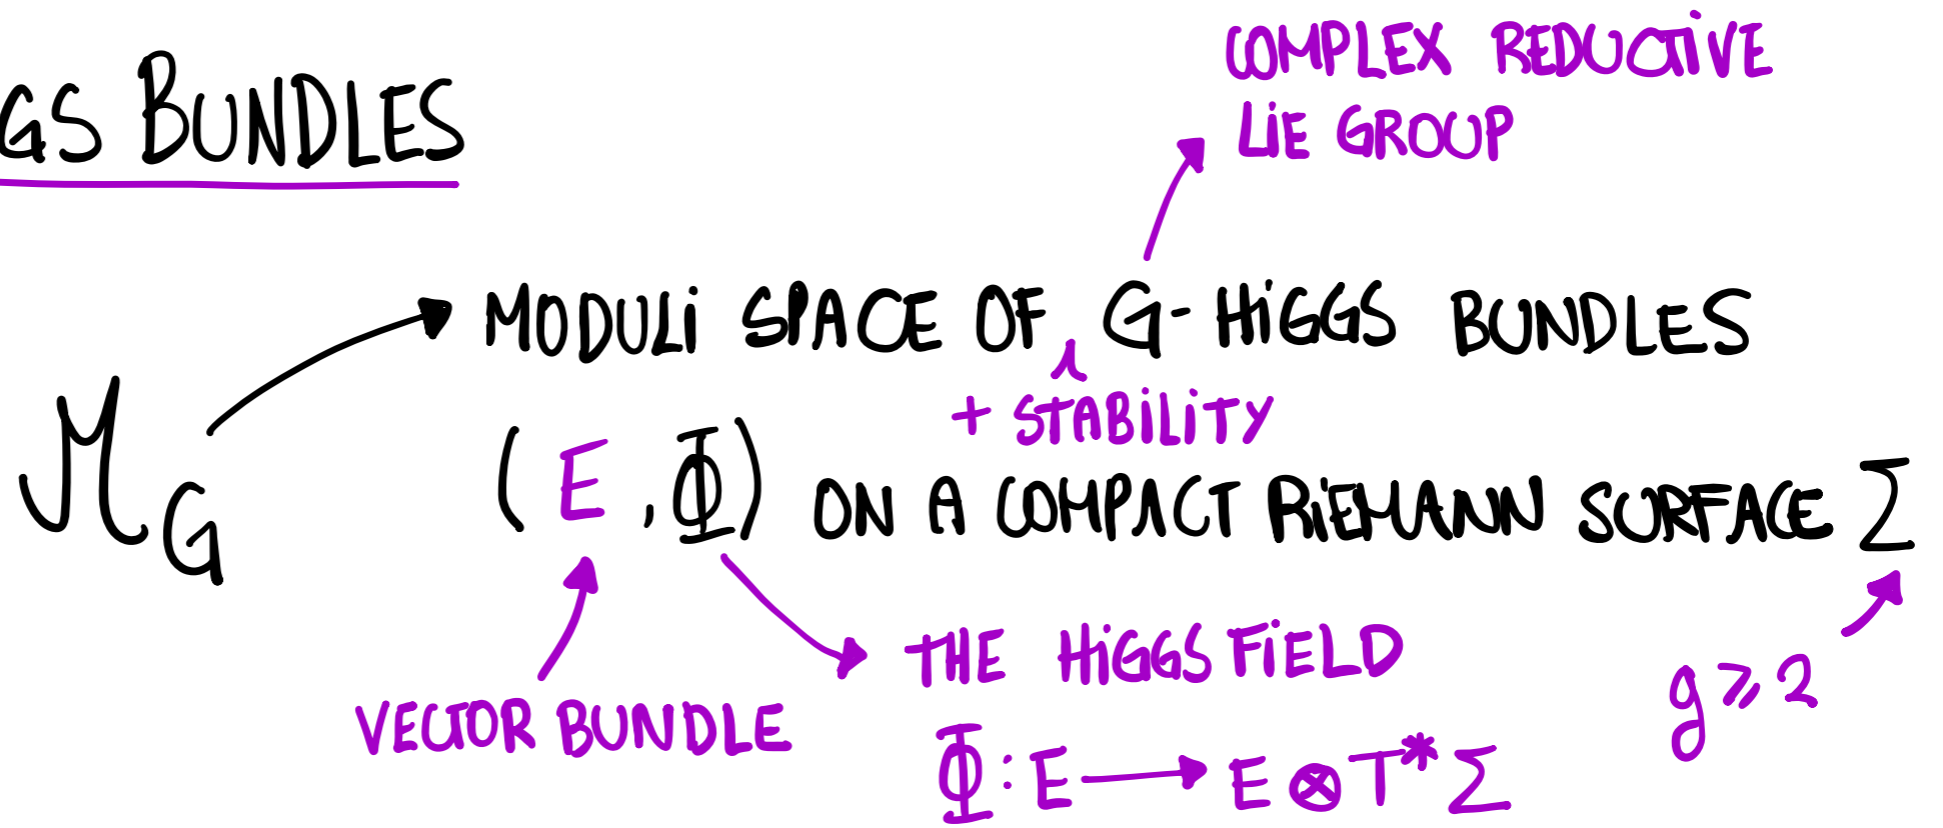 GS BUNDLES
COMPLEX REDUCTIVE
LIE GROUP
MODULI SPACE OF G-HIGGS BUNDLES
+ STABILITY
M_G
(E, Φ) ON A COMPACT RIEMANN SURFACE Σ
VECTOR BUNDLE
THE HIGGS FIELD
g ⩾ 2
Φ: E ⟶ E ⊗ T*Σ